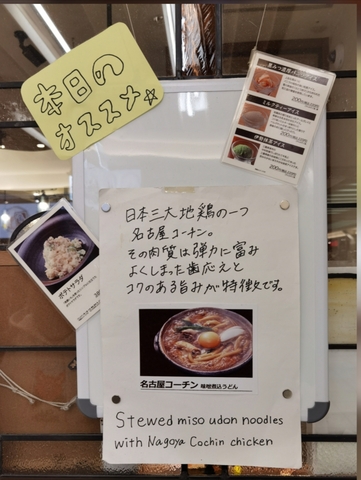 本日の
オススメ☆
黒みつ濃厚バニラアイス
ミルクティーアイス
伊勢抹茶アイス
ポテトサラダ
日本三大地鶏の一つ
名古屋コーチン。
その肉質は弾力に富み
よくしまった歯応えと
コクのある旨みが特徴です。
名古屋コーチン 味噌煮込うどん
Stewed miso udon noodles
with Nagoya Cochin chicken